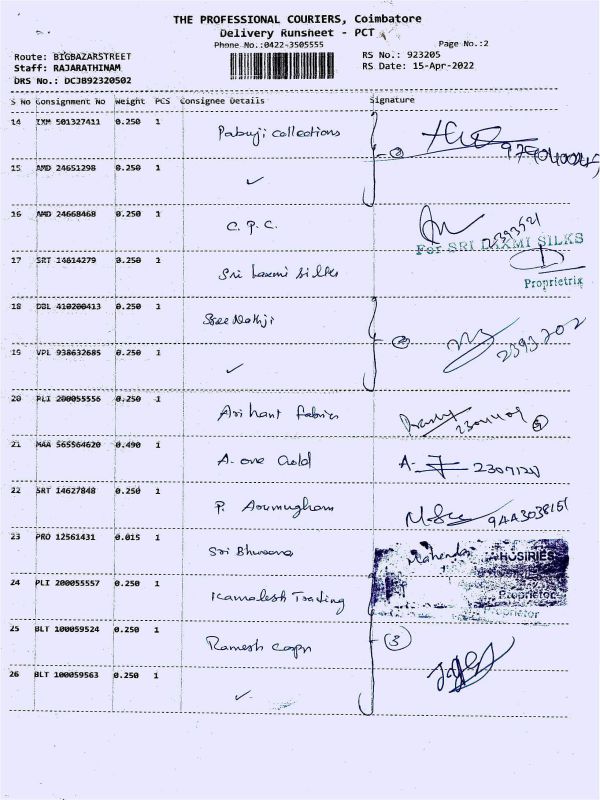 THE PROFESSIONAL COURIERS, Coimbatore
Delivery Runsheet - PCT
Phone No.:0422-3505555 Page No.:2
Route: BIGBAZARSTREET RS No.: 923205
Staff: RAJARATHINAM RS Date: 15-Apr-2022
DRS No.: DCJB92320502
S No Consignment No Weight PCS Consignee Details Signature
14 IXM 501327411 0.250 1 Pabuji Collections
15 AMD 24651298 0.250 1 ✓
16 AMD 24668468 0.250 1 C. P. C.
For SRI LAXMI SILKS
17 SRT 14614279 0.250 1 Sri Laxmi Silks
Proprietrix
18 DBL 410200413 0.250 1 Sree Nathji
19 VPL 938632685 0.250 1 ✓ 2393202
20 PLI 200055556 0.250 1 Arihant Fabrics
21 MAA 565564620 0.490 1 A. one Gold
22 SRT 14627848 0.250 1 P. Arumugham
23 PRO 12561431 0.015 1 Sri Bhuvana Mahendra HOSIRIES
24 PLI 200055557 0.250 1 Kamalesh Trading Proprietor
Proprietor
25 BLT 100059524 0.250 1 Ramesh Corpn 3
26 BLT 100059563 0.250 1 ✓